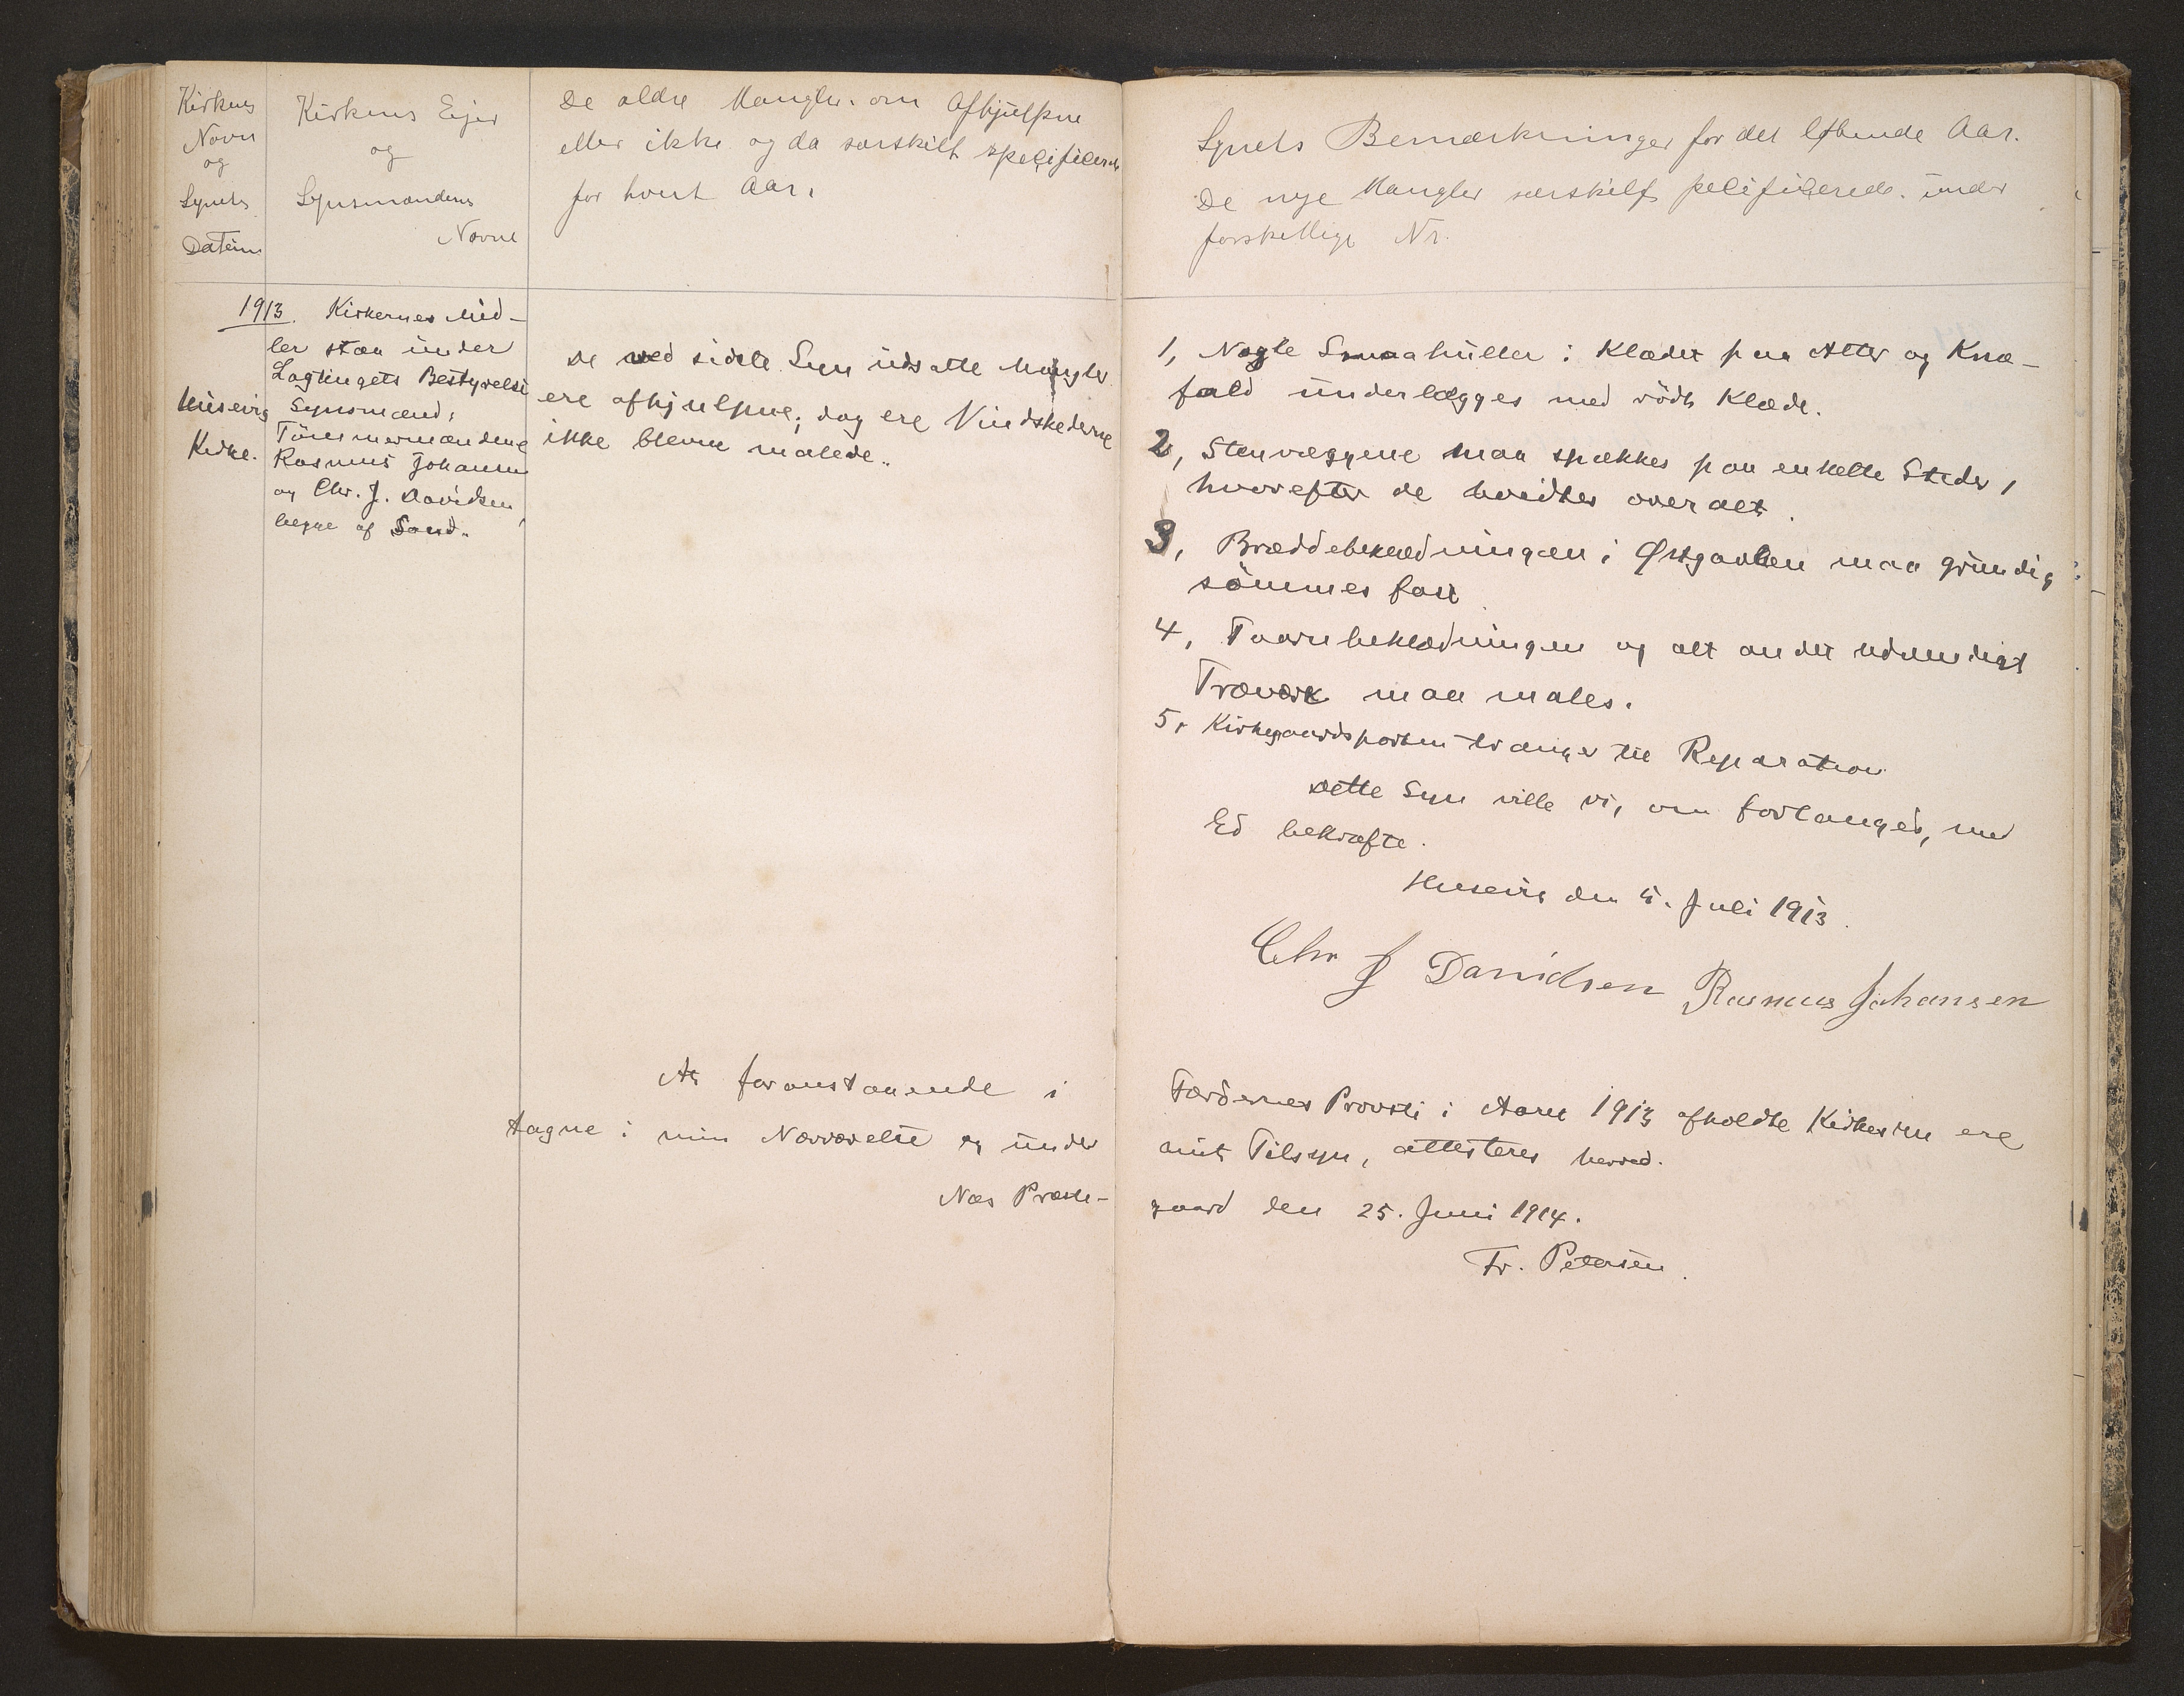 Kirkens
Navn
og
Synets
Datum
Kirkens Ejer
og
Synsmændens
Navne
De ældre Mangler om Afhjulpne
eller ikke og da særskilt specificerede
for hvert Aar.
1913. Kirkernes Mid-
ler staa under
Lagtingets Bestyrelse
Husevig
Kirke.
Synsmænd,
Tømmermændene
Rasmus Johansen
og Chr. J. Davidsen,
begge af Sand.
De ved sidste Syn udsatte Mangler
ere afhjulpne; dog ere Vindskederne
ikke blevne malede.
At foranstaaende i
tagne i min Nærværelse og under
Næs Præste-
Synets Bemærkninger for det løbende Aar.
De nye Mangler særskilt specificerede under
forskellige Nr.
1, Nogle Smaahuller i Klædet paa Alter og Knæ-
fald underlægges med rödt Klæde.
2, Stenvæggene maa spækkes paa enkelte Steder,
hvorefter de hvidtes overalt.
3, Bræddebeklædningen i Østgavlen maa grundig
sömmes fast.
4, Taarnbeklædningen og alt andet udvendigt
Træværk maa males.
5, Kirkegaardsporten trænger til Reparation
Dette Syn ville vi, om forlanges, med
Ed bekræfte.
Husevig den 5. Juli 1913.
Chr J Davidsen Rasmus Johansen
Færöernes Provsti i Aaret 1913 afholdte Kirkesyn ere
mit Tilsyn, attesteres herved.
gaard den 25. Juni 1914.
Fr. Petersen.